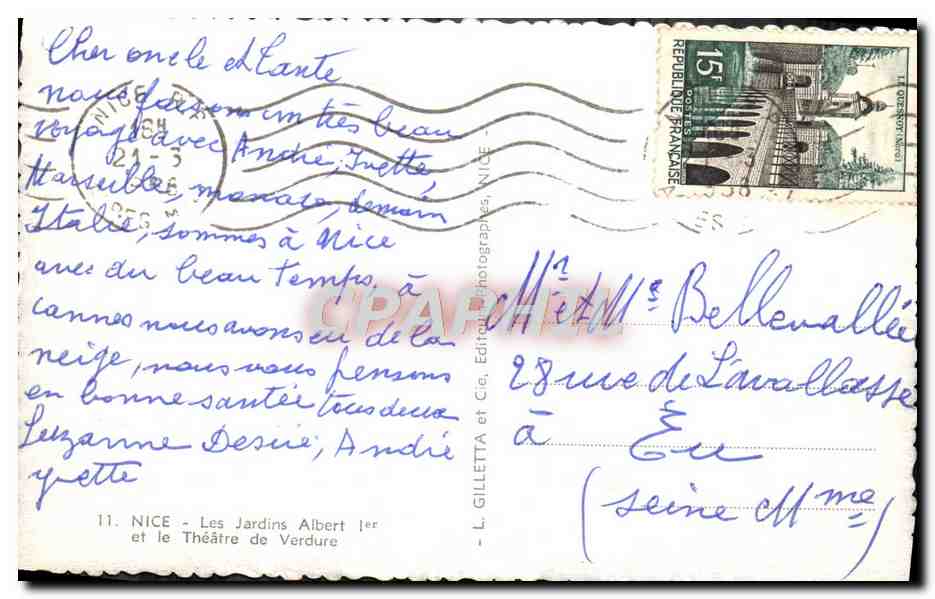 Cher oncle et tante
nous faisons un très beau
voyage avec André, Yvette,
Marseille, monaco, demain
Italie, sommes à Nice
avec du beau temps, à
cannes nous avons eu de la
neige, nous vous pensons
en bonne santée tous deux
Suzanne Desiré, André
yvette
11. NICE - Les Jardins Albert Ier
et le Théâtre de Verdure
- L. GILLETTA et Cie, Editeurs-Photographes, NICE -
NICE
21-3
15F
POSTES
REPUBLIQUE FRANÇAISE
LE QUESNOY (NORD)
Mr et Me Bellevallée
28 rue de Lavallasse
à Eu
(Seine Mme)
CPAPHIL